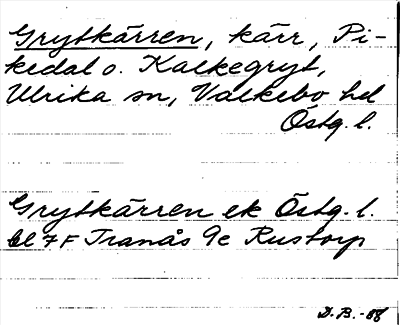 Grytkärren, kärr, Pi-
kedal o. Kalkegryt,
Ulrika sn, Valkebo hd
Östg. l.
Grytkärren ek Östg. l.
bl 7F Tranås 9c Rustorp
D. B. -88